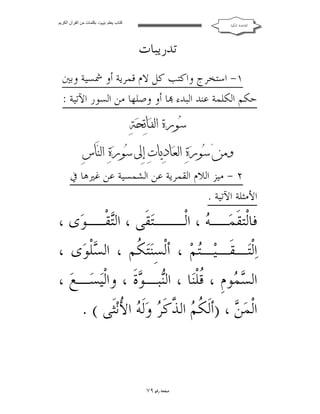 كتاب يعلم بيوت بكلمات من القرآن الكريم
القاعدة المكية
تدريبات
١- استخرج واكتب كل لام قمرية أو شمسية وبين
حكم الكلمة عند البدء بها أو وصلها من السور الآتية :
سُورَةِ الفَاتِحَةِ
ومن سُورَةِ العَادِيَاتِ إلى سُورَةِ النَّاسِ
٢- ميز اللام القمرية عن الشمسية عن غيرها في
الأمثلة الآتية .
فَالْتَقَمَهُ ، الْتَقَى ، التَّقْوَى ،
الْتَقَيْتُمْ ، أَلْسِنَتَكُم ، السَّلْوَى ،
السَّمُومِ ، قُلْنَا ، النُّبُوَّةَ ، والْيَسَعَ ،
الْمَنَّ ، (أَلَكُمُ الذَّكَرُ وَلَهُ الأُنْثَى ) .
صفحة رقم ٧٩